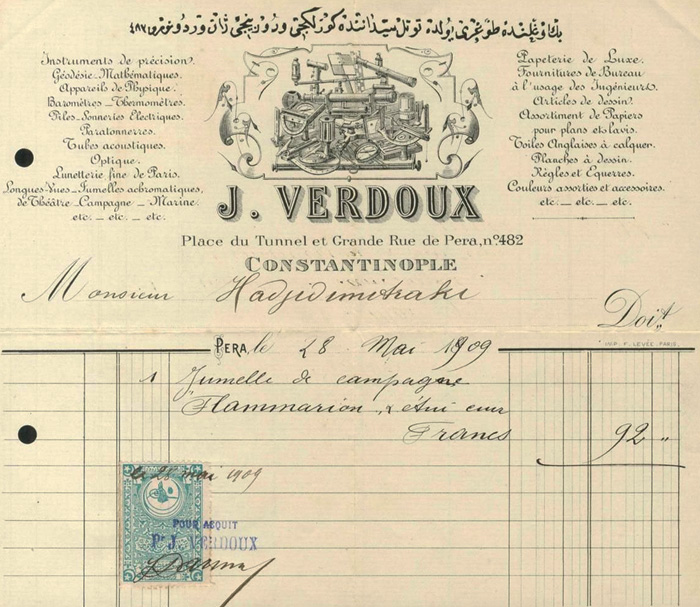 Instruments de précision.
Géodésie-Mathématiques.
Appareils de Physique.
Baromètres-Thermomètres.
Piles-Sonneries Electriques.
Paratonnerres.
Tubes acoustiques.
Optique.
Lunetterie fine de Paris.
Longues-Vues-Jumelles achromatiques,
de Théâtre-Campagne-Marine.
etc.— etc.— etc.
Papeterie de Luxe.
Fournitures de Bureau
à l'usage des Ingénieurs.
Articles de dessin.
Assortiment de Papiers
pour plans et lavis.
Toiles Anglaises à calquer.
Planches à dessin.
Règles et Equerres.
Couleurs assorties et accessoires.
etc.— etc.— etc.
J. VERDOUX
Place du Tunnel et Grande Rue de Pera, nº 482
CONSTANTINOPLE
Monsieur Hadjidimitraki
Doit
IMP. F. LEVÉE. PARIS.
PERA, le 28 Mai 1909
1 Jumelle de campagne
Flammarion, & étui cuir
Francs 92 "
le 28 mai 1909
POUR ACQUIT
Pr J. VERDOUX